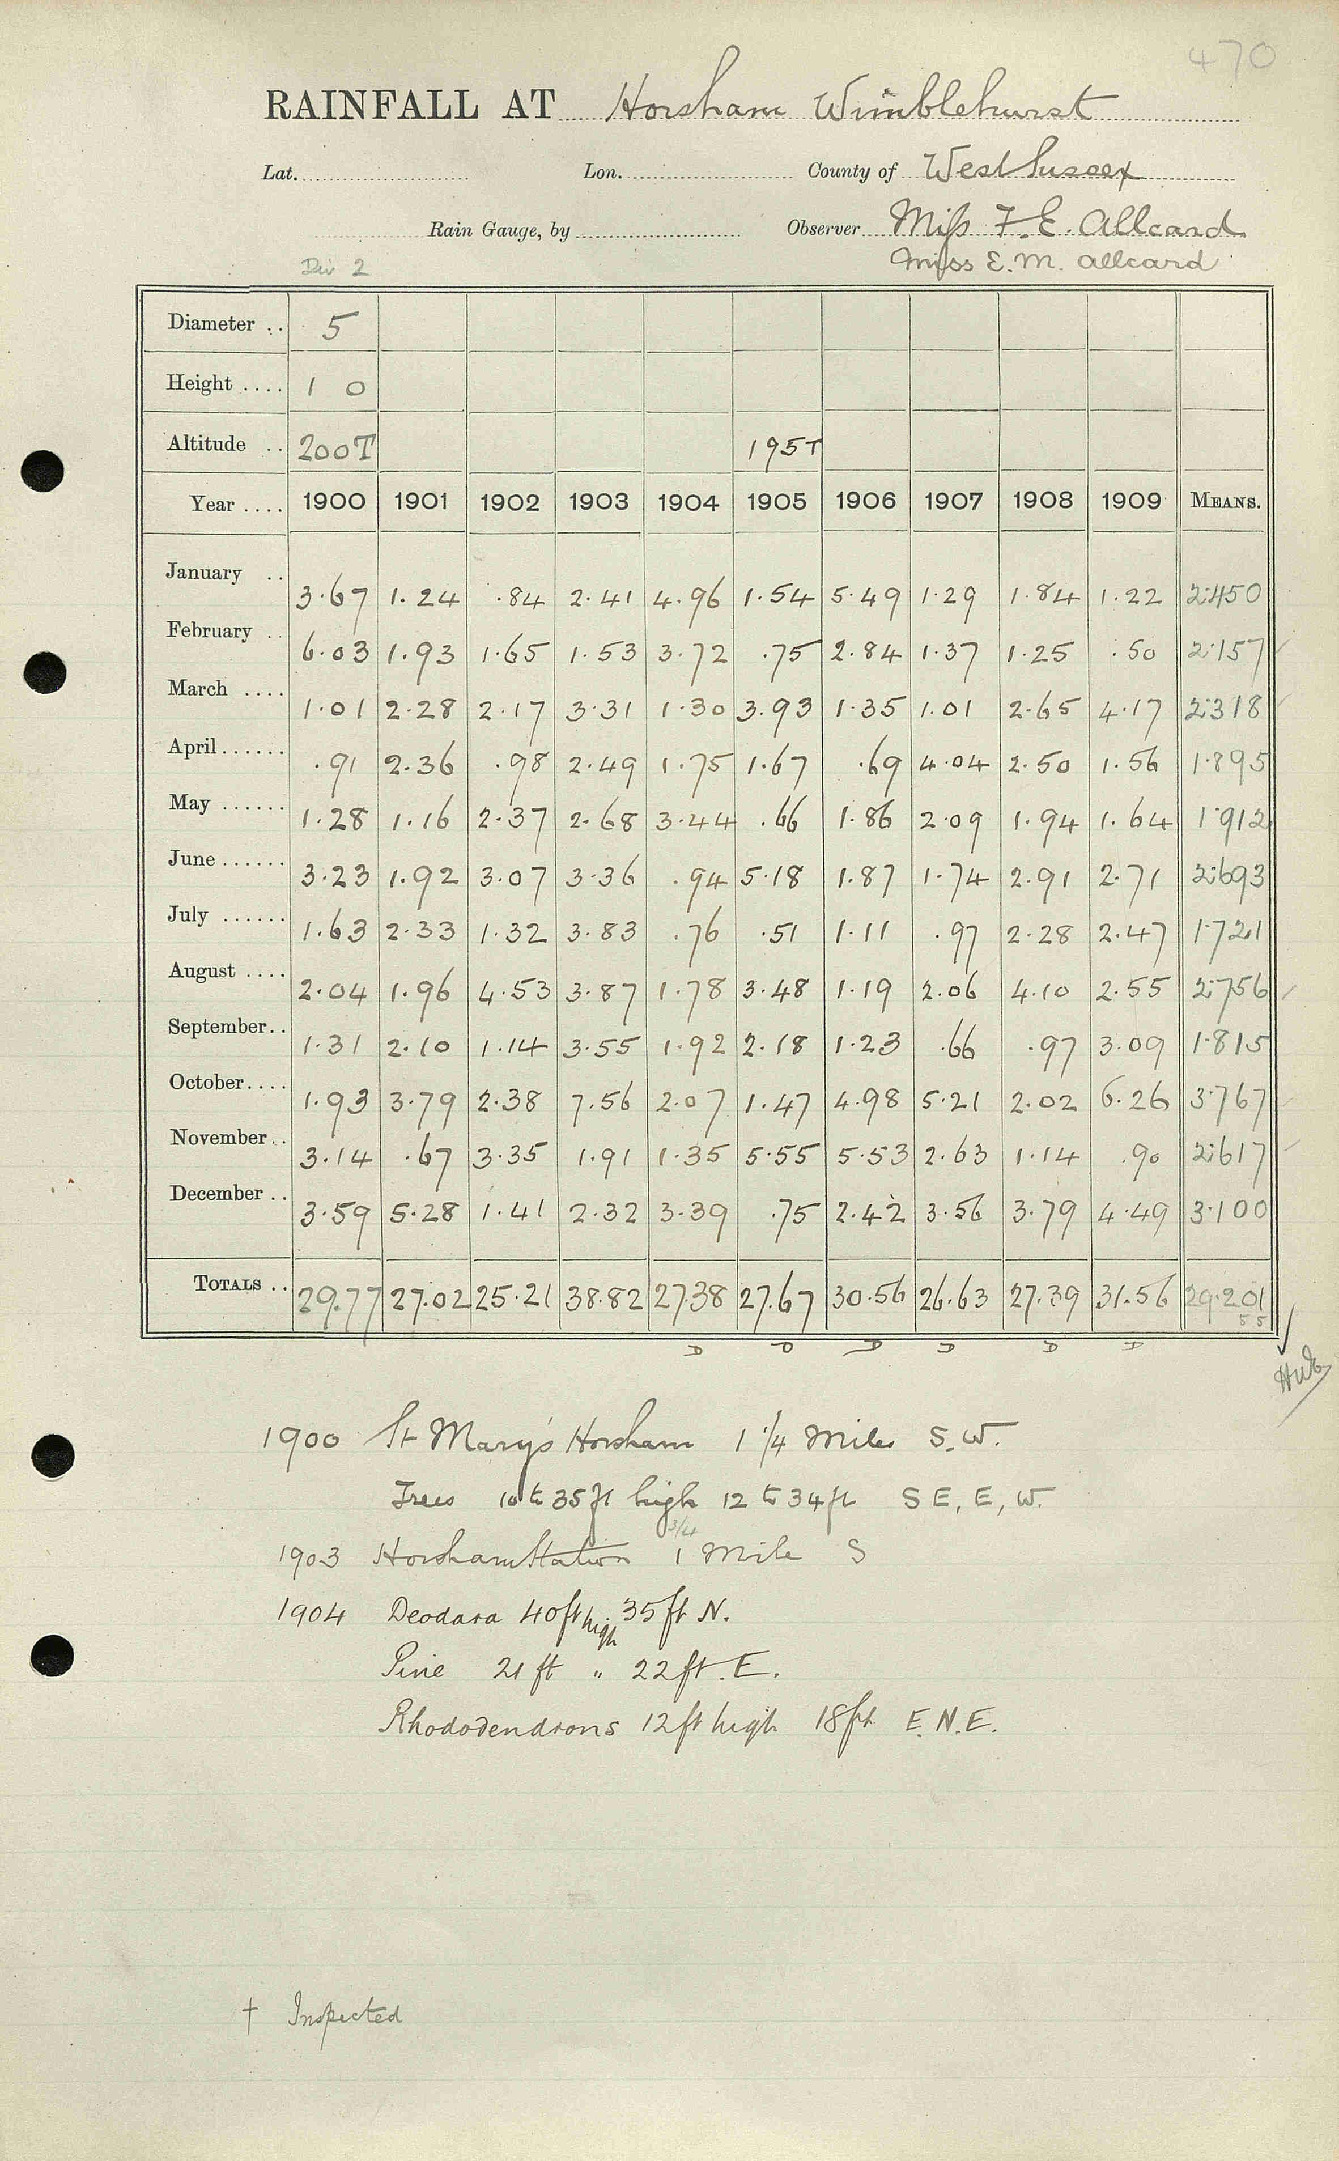 470
RAINFALL AT Horsham Wimblehurst
Lat. Lon. County of West Sussex
Rain Gauge, by Observer Miss F. E. Allcard
Div 2 Miss E. M. Allcard
Diameter .. 5
Height .... 1 0
Altitude .. 200T 195T
Year .... 1900 1901 1902 1903 1904 1905 1906 1907 1908 1909 MEANS.
January .. 3.67 1.24 .84 2.41 4.96 1.54 5.49 1.29 1.84 1.22 2.450
February .. 6.03 1.93 1.65 1.53 3.72 .75 2.84 1.37 1.25 .50 2.157
March .... 1.01 2.28 2.17 3.31 1.30 3.93 1.35 1.01 2.65 4.17 2.318
April ...... .91 2.36 .98 2.49 1.75 1.67 .69 4.04 2.50 1.56 1.895
May ...... 1.28 1.16 2.37 2.68 3.44 .66 1.86 2.09 1.94 1.64 1.912
June ...... 3.23 1.92 3.07 3.36 .94 5.18 1.87 1.74 2.91 2.71 2.693
July ...... 1.63 2.33 1.32 3.83 .76 .51 1.11 .97 2.28 2.47 1.721
August .... 2.04 1.96 4.53 3.87 1.78 3.48 1.19 2.06 4.10 2.55 2.756
September.. 1.31 2.10 1.14 3.55 1.92 2.18 1.23 .66 .97 3.09 1.815
October.... 1.93 3.79 2.38 7.56 2.07 1.47 4.98 5.21 2.02 6.26 3.767
November.. 3.14 .67 3.35 1.91 1.35 5.55 5.53 2.63 1.14 .90 2.617
December .. 3.59 5.28 1.41 2.32 3.39 .75 2.42 3.56 3.79 4.49 3.100
TOTALS .. 29.77 27.02 25.21 38.82 27.38 27.67 30.56 26.63 27.39 31.56 29.201
5 5
D D D D D D
1900 St Mary's Horsham 1 1/4 Miles S.W.
Trees 10 to 35 ft high 12 to 34 ft S E, E, W.
3/4
1903 Horsham Station 1 Mile S
1904 Deodara 40ft high 35 ft N.
Pine 21 ft " 22 ft. E.
Rhododendrons 12 ft high 18 ft E. N. E.
† Inspected